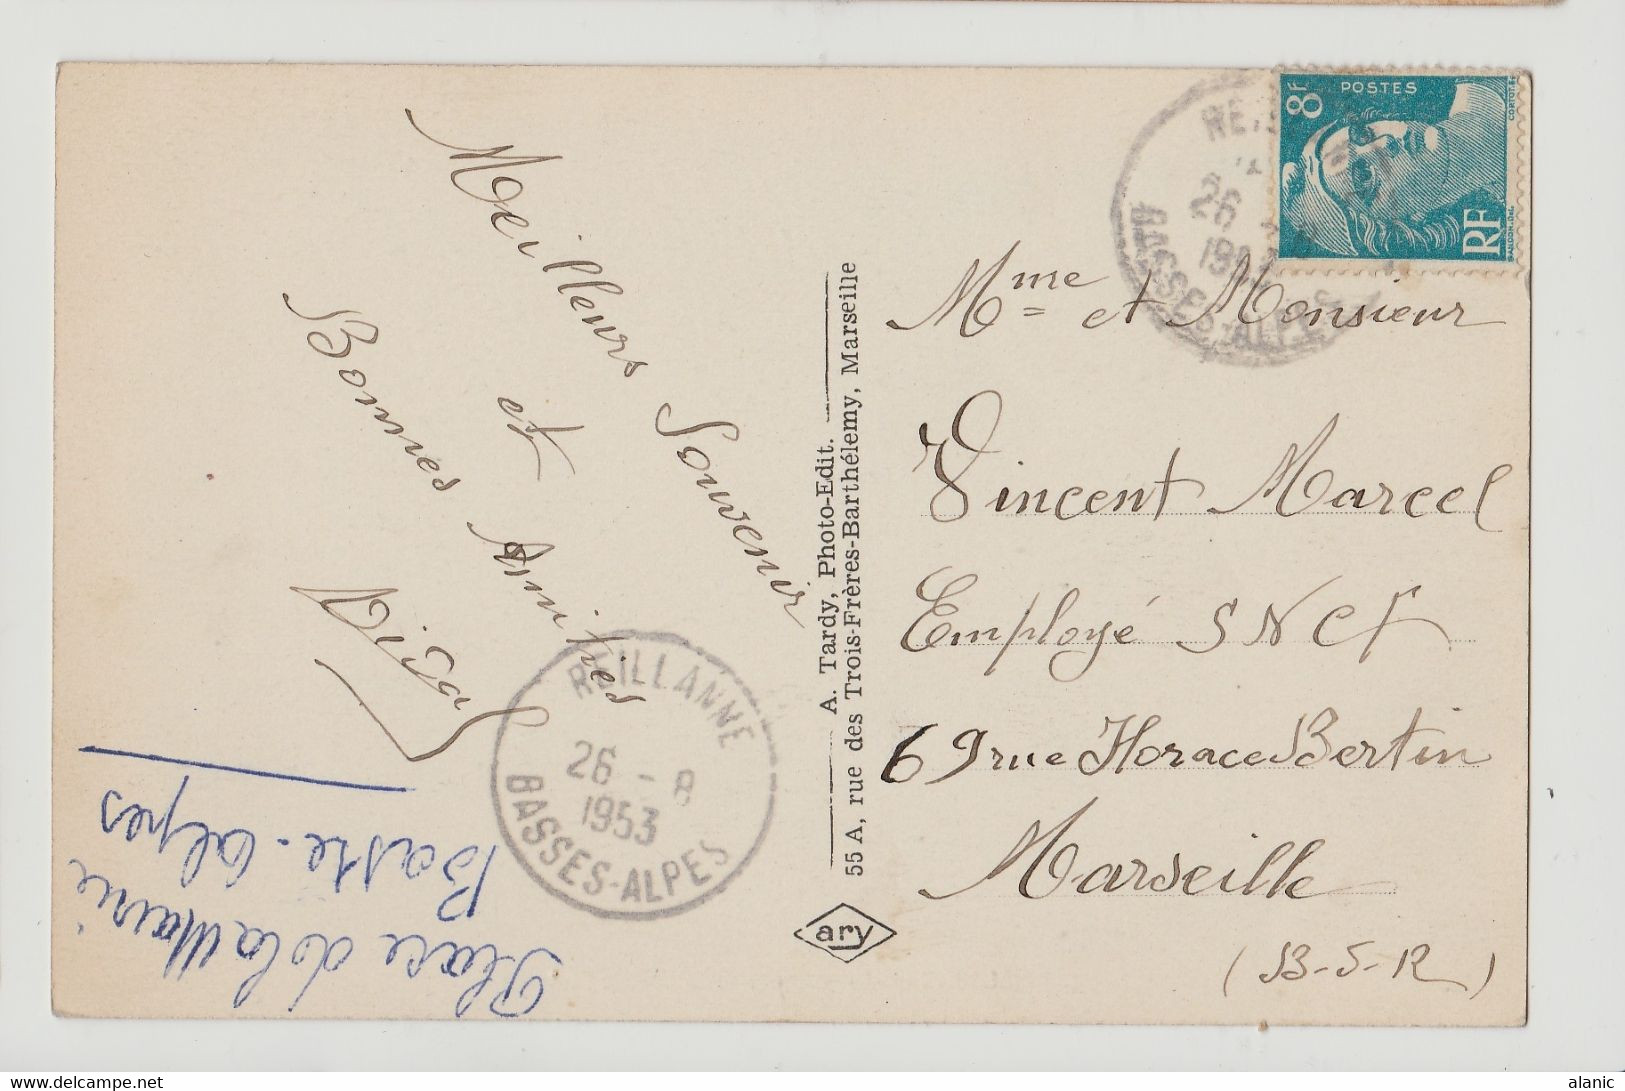 Meilleurs Souvenir
et
Bonnes Amitiés
Place de la Mairie
Basse-Alpes
REILLANNE
26 - 8
1953
BASSES-ALPES
A. Tardy, Photo-Edit.
55 A, rue des Trois-Frères-Barthélemy, Marseille
ary
POSTES
8F
RF
26
BASSES-ALPES
Mme et Monsieur
Vincent Marcel
Employé SNCF
69 rue Horace Bertin
Marseille
(B-5-R)
alanic